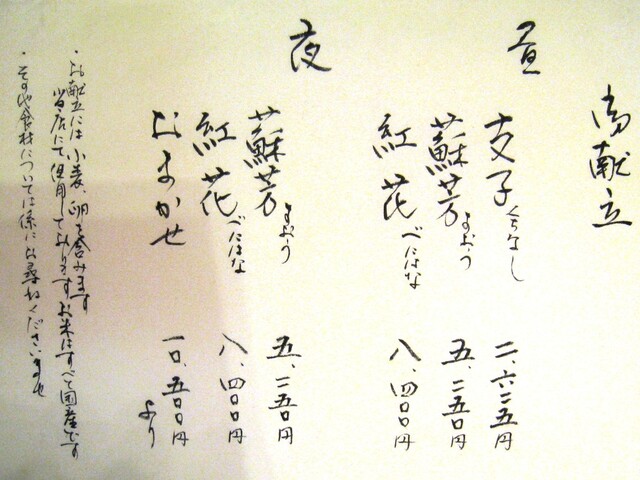 御献立
昼
支子 くちなし 二、六二五円
蘇芳 すおう 五、二五〇円
紅花 べにばな 八、四〇〇円
夜
蘇芳 すおう 五、二五〇円
紅花 べにばな 八、四〇〇円
おまかせ 一〇、五〇〇円より
・お献立には小麦、卵を含みます
当店にて使用しておりますお米はすべて国産です
・その他食材については係にお尋ねくださいませ